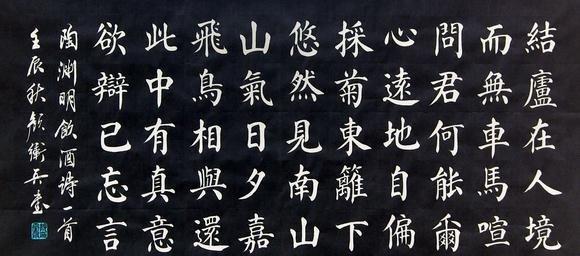 結廬在人境
而無車馬喧
問君何能爾
心遠地自偏
採菊東籬下
悠然見南山
山氣日夕嘉
飛鳥相與還
此中有真意
欲辯已忘言
陶渊明飲酒詩一首
壬辰秋顏衛兵書